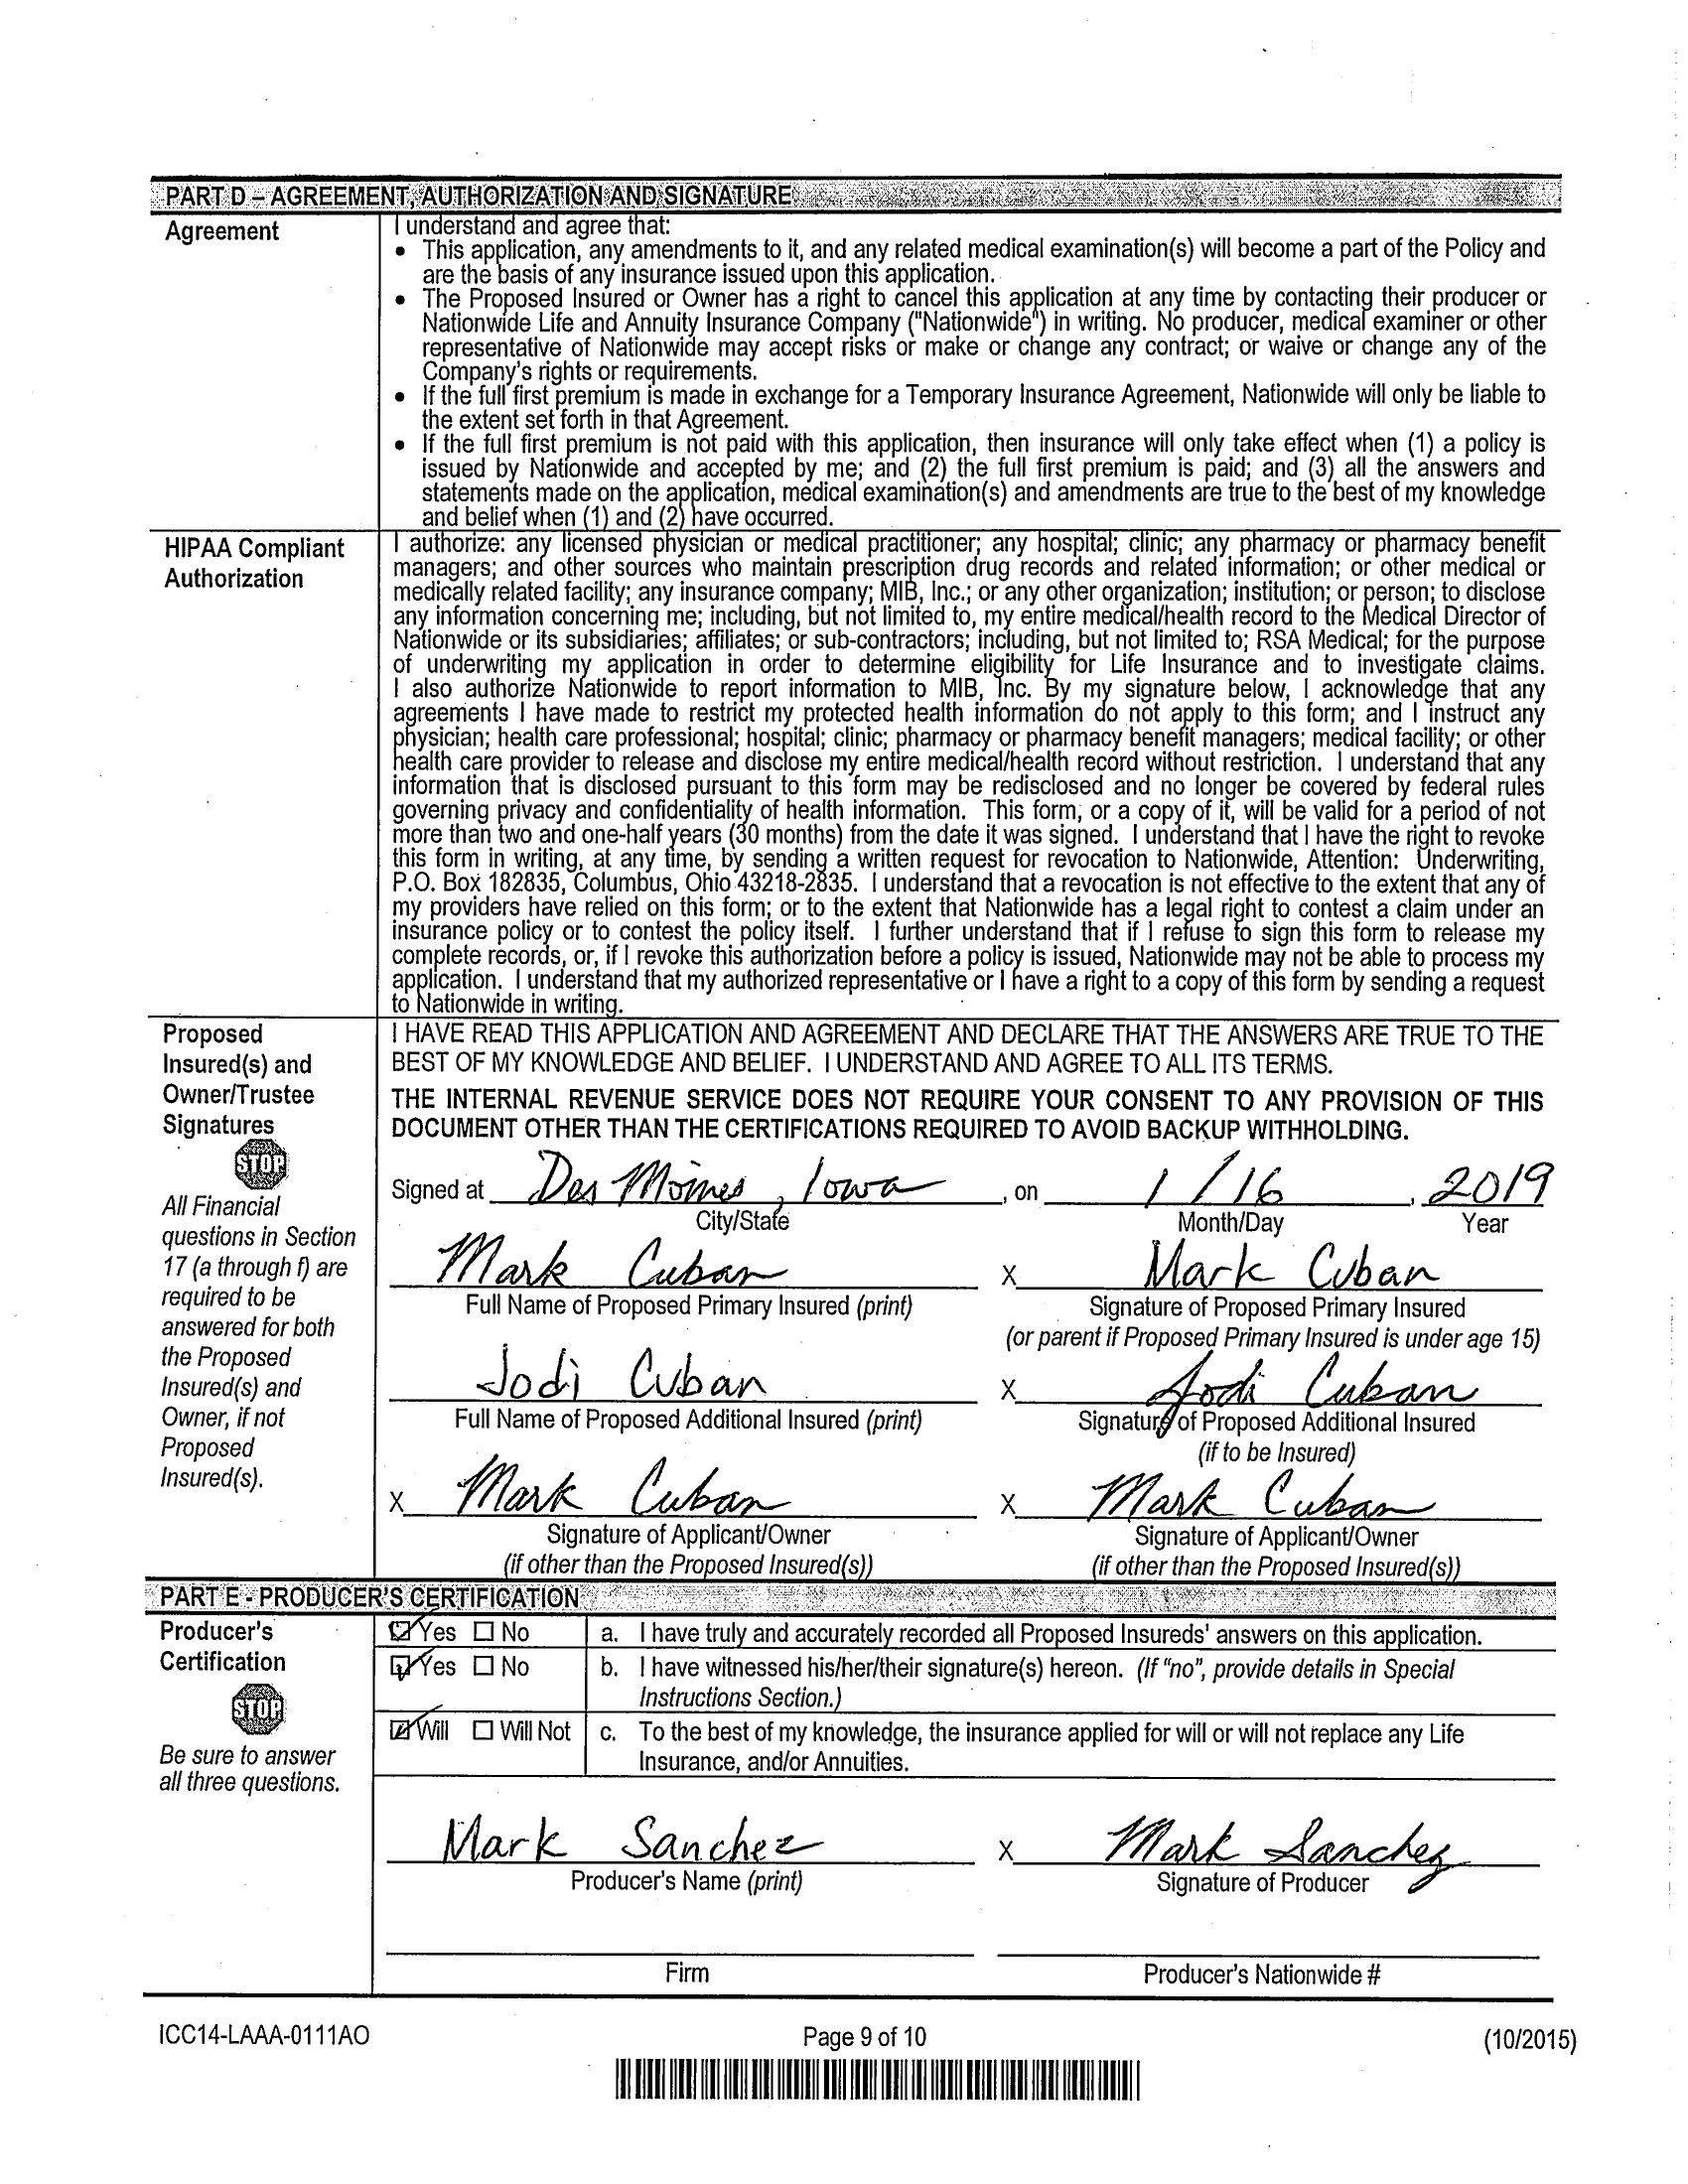 PART D – AGREEMENT, AUTHORIZATION AND SIGNATURE
Agreement
I understand and agree that:
• This application, any amendments to it, and any related medical examination(s) will become a part of the Policy and
are the basis of any insurance issued upon this application.
• The Proposed Insured or Owner has a right to cancel this application at any time by contacting their producer or
Nationwide Life and Annuity Insurance Company ("Nationwide") in writing. No producer, medical examiner or other
representative of Nationwide may accept risks or make or change any contract; or waive or change any of the
Company's rights or requirements.
• If the full first premium is made in exchange for a Temporary Insurance Agreement, Nationwide will only be liable to
the extent set forth in that Agreement.
• If the full first premium is not paid with this application, then insurance will only take effect when (1) a policy is
issued by Nationwide and accepted by me; and (2) the full first premium is paid; and (3) all the answers and
statements made on the application, medical examination(s) and amendments are true to the best of my knowledge
and belief when (1) and (2) have occurred.
HIPAA Compliant
Authorization
I authorize: any licensed physician or medical practitioner; any hospital; clinic; any pharmacy or pharmacy benefit
managers; and other sources who maintain prescription drug records and related information; or other medical or
medically related facility; any insurance company; MIB, Inc.; or any other organization; institution; or person; to disclose
any information concerning me; including, but not limited to, my entire medical/health record to the Medical Director of
Nationwide or its subsidiaries; affiliates; or sub-contractors; including, but not limited to; RSA Medical; for the purpose
of underwriting my application in order to determine eligibility for Life Insurance and to investigate claims.
I also authorize Nationwide to report information to MIB, Inc. By my signature below, I acknowledge that any
agreements I have made to restrict my protected health information do not apply to this form; and I instruct any
physician; health care professional; hospital; clinic; pharmacy or pharmacy benefit managers; medical facility; or other
health care provider to release and disclose my entire medical/health record without restriction. I understand that any
information that is disclosed pursuant to this form may be redisclosed and no longer be covered by federal rules
governing privacy and confidentiality of health information. This form, or a copy of it, will be valid for a period of not
more than two and one-half years (30 months) from the date it was signed. I understand that I have the right to revoke
this form in writing, at any time, by sending a written request for revocation to Nationwide, Attention: Underwriting,
P.O. Box 182835, Columbus, Ohio 43218-2835. I understand that a revocation is not effective to the extent that any of
my providers have relied on this form; or to the extent that Nationwide has a legal right to contest a claim under an
insurance policy or to contest the policy itself. I further understand that if I refuse to sign this form to release my
complete records, or, if I revoke this authorization before a policy is issued, Nationwide may not be able to process my
application. I understand that my authorized representative or I have a right to a copy of this form by sending a request
to Nationwide in writing.
Proposed
Insured(s) and
Owner/Trustee
Signatures
STOP
All Financial
questions in Section
17 (a through f) are
required to be
answered for both
the Proposed
Insured(s) and
Owner, if not
Proposed
Insured(s).
I HAVE READ THIS APPLICATION AND AGREEMENT AND DECLARE THAT THE ANSWERS ARE TRUE TO THE
BEST OF MY KNOWLEDGE AND BELIEF. I UNDERSTAND AND AGREE TO ALL ITS TERMS.
THE INTERNAL REVENUE SERVICE DOES NOT REQUIRE YOUR CONSENT TO ANY PROVISION OF THIS
DOCUMENT OTHER THAN THE CERTIFICATIONS REQUIRED TO AVOID BACKUP WITHHOLDING.
Signed at Des Moines, Iowa, on 1/16, 2019
City/State Month/Day Year
Mark Cuban X Mark Cuban
Full Name of Proposed Primary Insured (print) Signature of Proposed Primary Insured
(or parent if Proposed Primary Insured is under age 15)
Jodi Cuban X Jodi Cuban
Full Name of Proposed Additional Insured (print) Signature of Proposed Additional Insured
(if to be Insured)
X Mark Cuban X Mark Cuban
Signature of Applicant/Owner Signature of Applicant/Owner
(if other than the Proposed Insured(s)) (if other than the Proposed Insured(s))
PART E - PRODUCER'S CERTIFICATION
Producer's
Certification
STOP
Be sure to answer
all three questions.
☑ Yes ☐ No a. I have truly and accurately recorded all Proposed Insureds' answers on this application.
☑ Yes ☐ No b. I have witnessed his/her/their signature(s) hereon. (If "no", provide details in Special
Instructions Section.)
☑ Will ☐ Will Not c. To the best of my knowledge, the insurance applied for will or will not replace any Life
Insurance, and/or Annuities.
Mark Sanchez X Mark Sanchez
Producer's Name (print) Signature of Producer
Firm Producer's Nationwide #
ICC14-LAAA-0111AO Page 9 of 10 (10/2015)